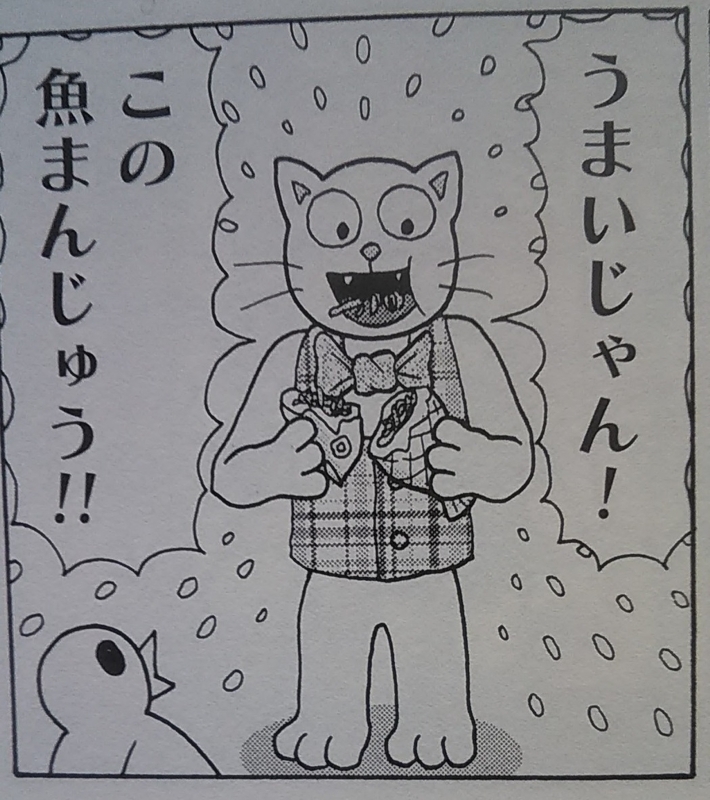 うまいじゃん!
この
魚まんじゅう!!